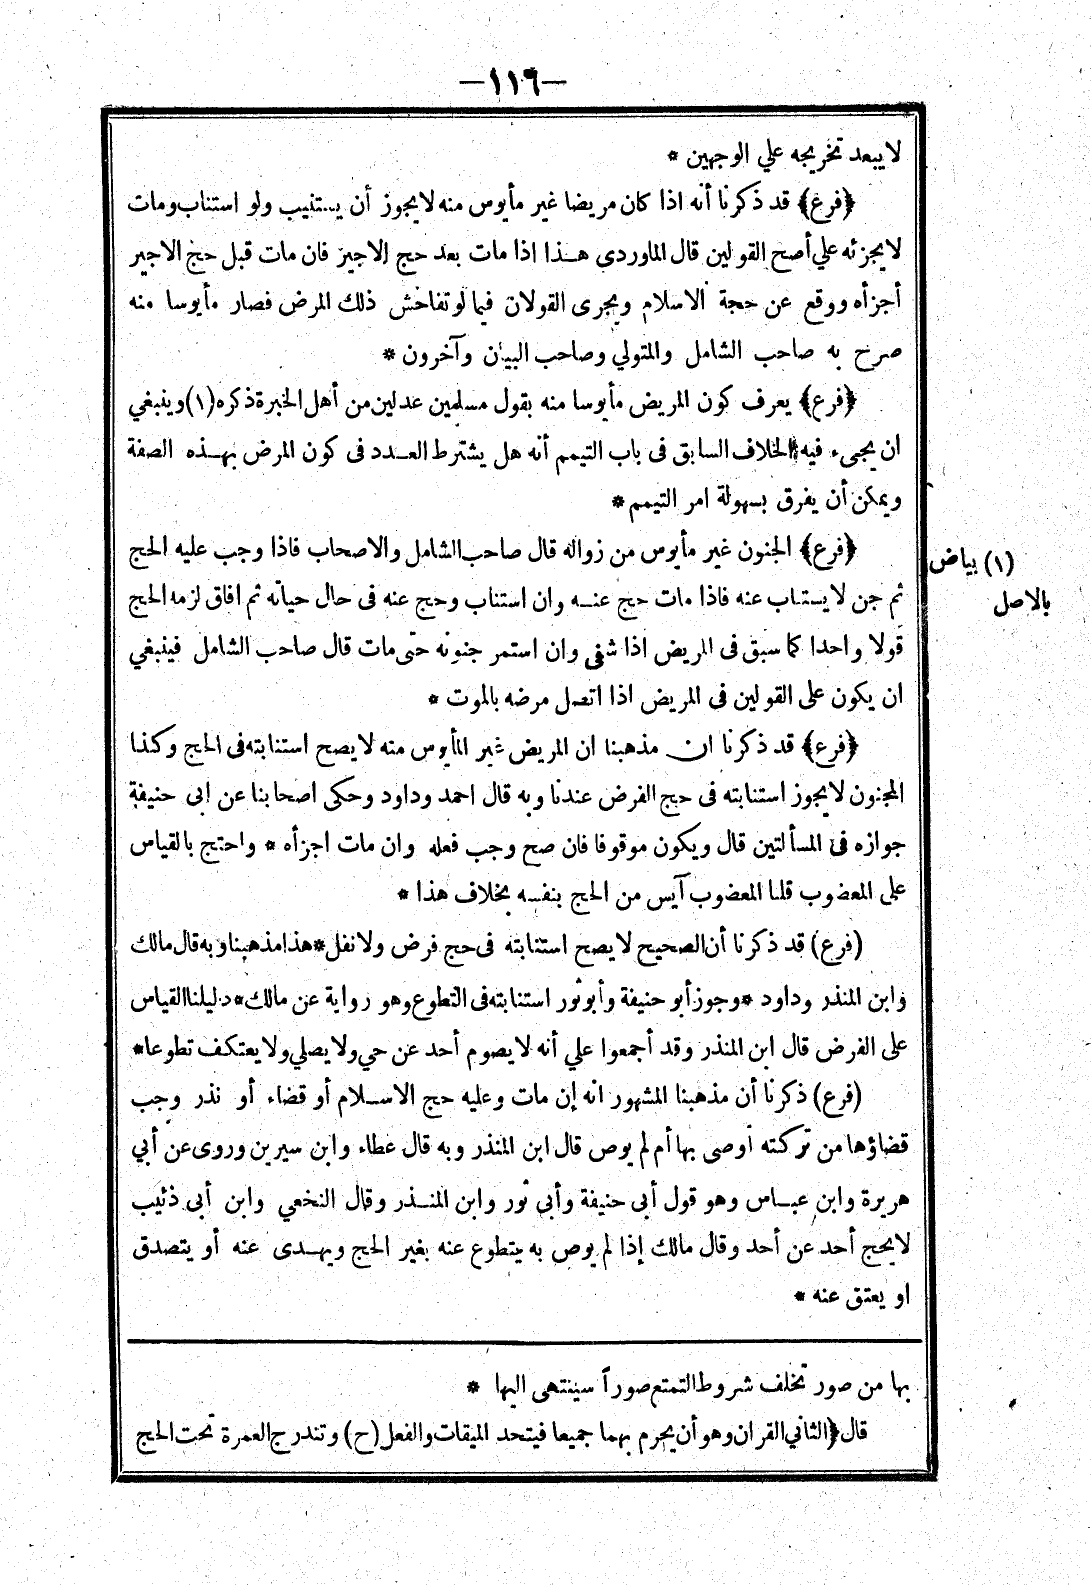 —١١٦—
لا يبعد تخريجه علي الوجهين *
﴿فرع﴾ قد ذكرنا أنه اذا كان مريضا غير مأيوس منه لا يجوز أن يستنيب ولو استناب ومات
لا يجزئه علي أصح القولين قال الماوردى هذا اذا مات بعد حج الاجير فان مات قبل حج الاجير
أجزأه ووقع عن حجة الاسلام ويجرى القولان فيما لو تفاحش ذلك المرض فصار مأيوسا منه
صرح به صاحب الشامل والمتولي وصاحب البيان وآخرون *
﴿فرع﴾ يعرف كون المريض مأيوسا منه بقول مسلمين عدلين من أهل الخبرة ذكره (١) وينبغي
ان يجىء فيه الخلاف السابق فى باب التيمم أنه هل يشترط العدد فى كون المرض بهذه الصفة
ويمكن أن يفرق بسهولة امر التيمم *
﴿فرع﴾ الجنون غير مأيوس من زواله قال صاحب الشامل والاصحاب فاذا وجب عليه الحج
(١) بياض
ثم جن لا يستناب عنه فاذا مات حج عنه وان استناب وحج عنه فى حال حياته ثم افاق لزمه الحج
بالاصل
قولا واحدا كما سبق فى المريض اذا شفى وان استمر جنونه حتى مات قال صاحب الشامل فينبغي
ان يكون على القولين فى المريض اذا اتصل مرضه بالموت *
﴿فرع﴾ قد ذكرنا ان مذهبنا ان المريض غير المأيوس منه لا يصح استنابته فى الحج وكذا
المجنون لا يجوز استنابته فى حج الفرض عندنا وبه قال احمد وداود وحكى اصحابنا عن ابى حنيفة
جوازه فى المسألتين قال ويكون موقوفا فان صح وجب فعله وان مات اجزأه * واحتج بالقياس
على المعضوب قلنا المعضوب آيس من الحج بنفسه بخلاف هذا *
(فرع) قد ذكرنا أن الصحيح لا يصح استنابته فى حج فرض ولا نفل * هذا مذهبنا وبه قال مالك
وابن المنذر وداود * وجوز أبو حنيفة وأبو ثور استنابته فى التطوع وهو رواية عن مالك * دليلنا القياس
على الفرض قال ابن المنذر وقد أجمعوا علي أنه لا يصوم أحد عن حي ولا يصلي ولا يعتكف تطوعا *
(فرع) ذكرنا أن مذهبنا المشهور انه إن مات وعليه حج الاسلام أو قضاء أو نذر وجب
قضاؤها من تركته أوصى بها أم لم يوص قال ابن المنذر وبه قال عطاء وابن سيرين وروى عن أبي
هريرة وابن عباس وهو قول أبى حنيفة وأبي ثور وابن المنذر وقال النخعي وابن أبى ذئيب
لا يحج أحد عن أحد وقال مالك إذا لم يوص به يتطوع عنه بغير الحج ويهدى عنه أو يتصدق
او يعتق عنه *
بها من صور تخلف شروط التمتع صوراً سينتهى اليها *
قال ﴿الثاني القران وهو أن يحرم بهما جميعا فيتحد الميقات والفعل (ح) وتندرج العمرة تحت الحج